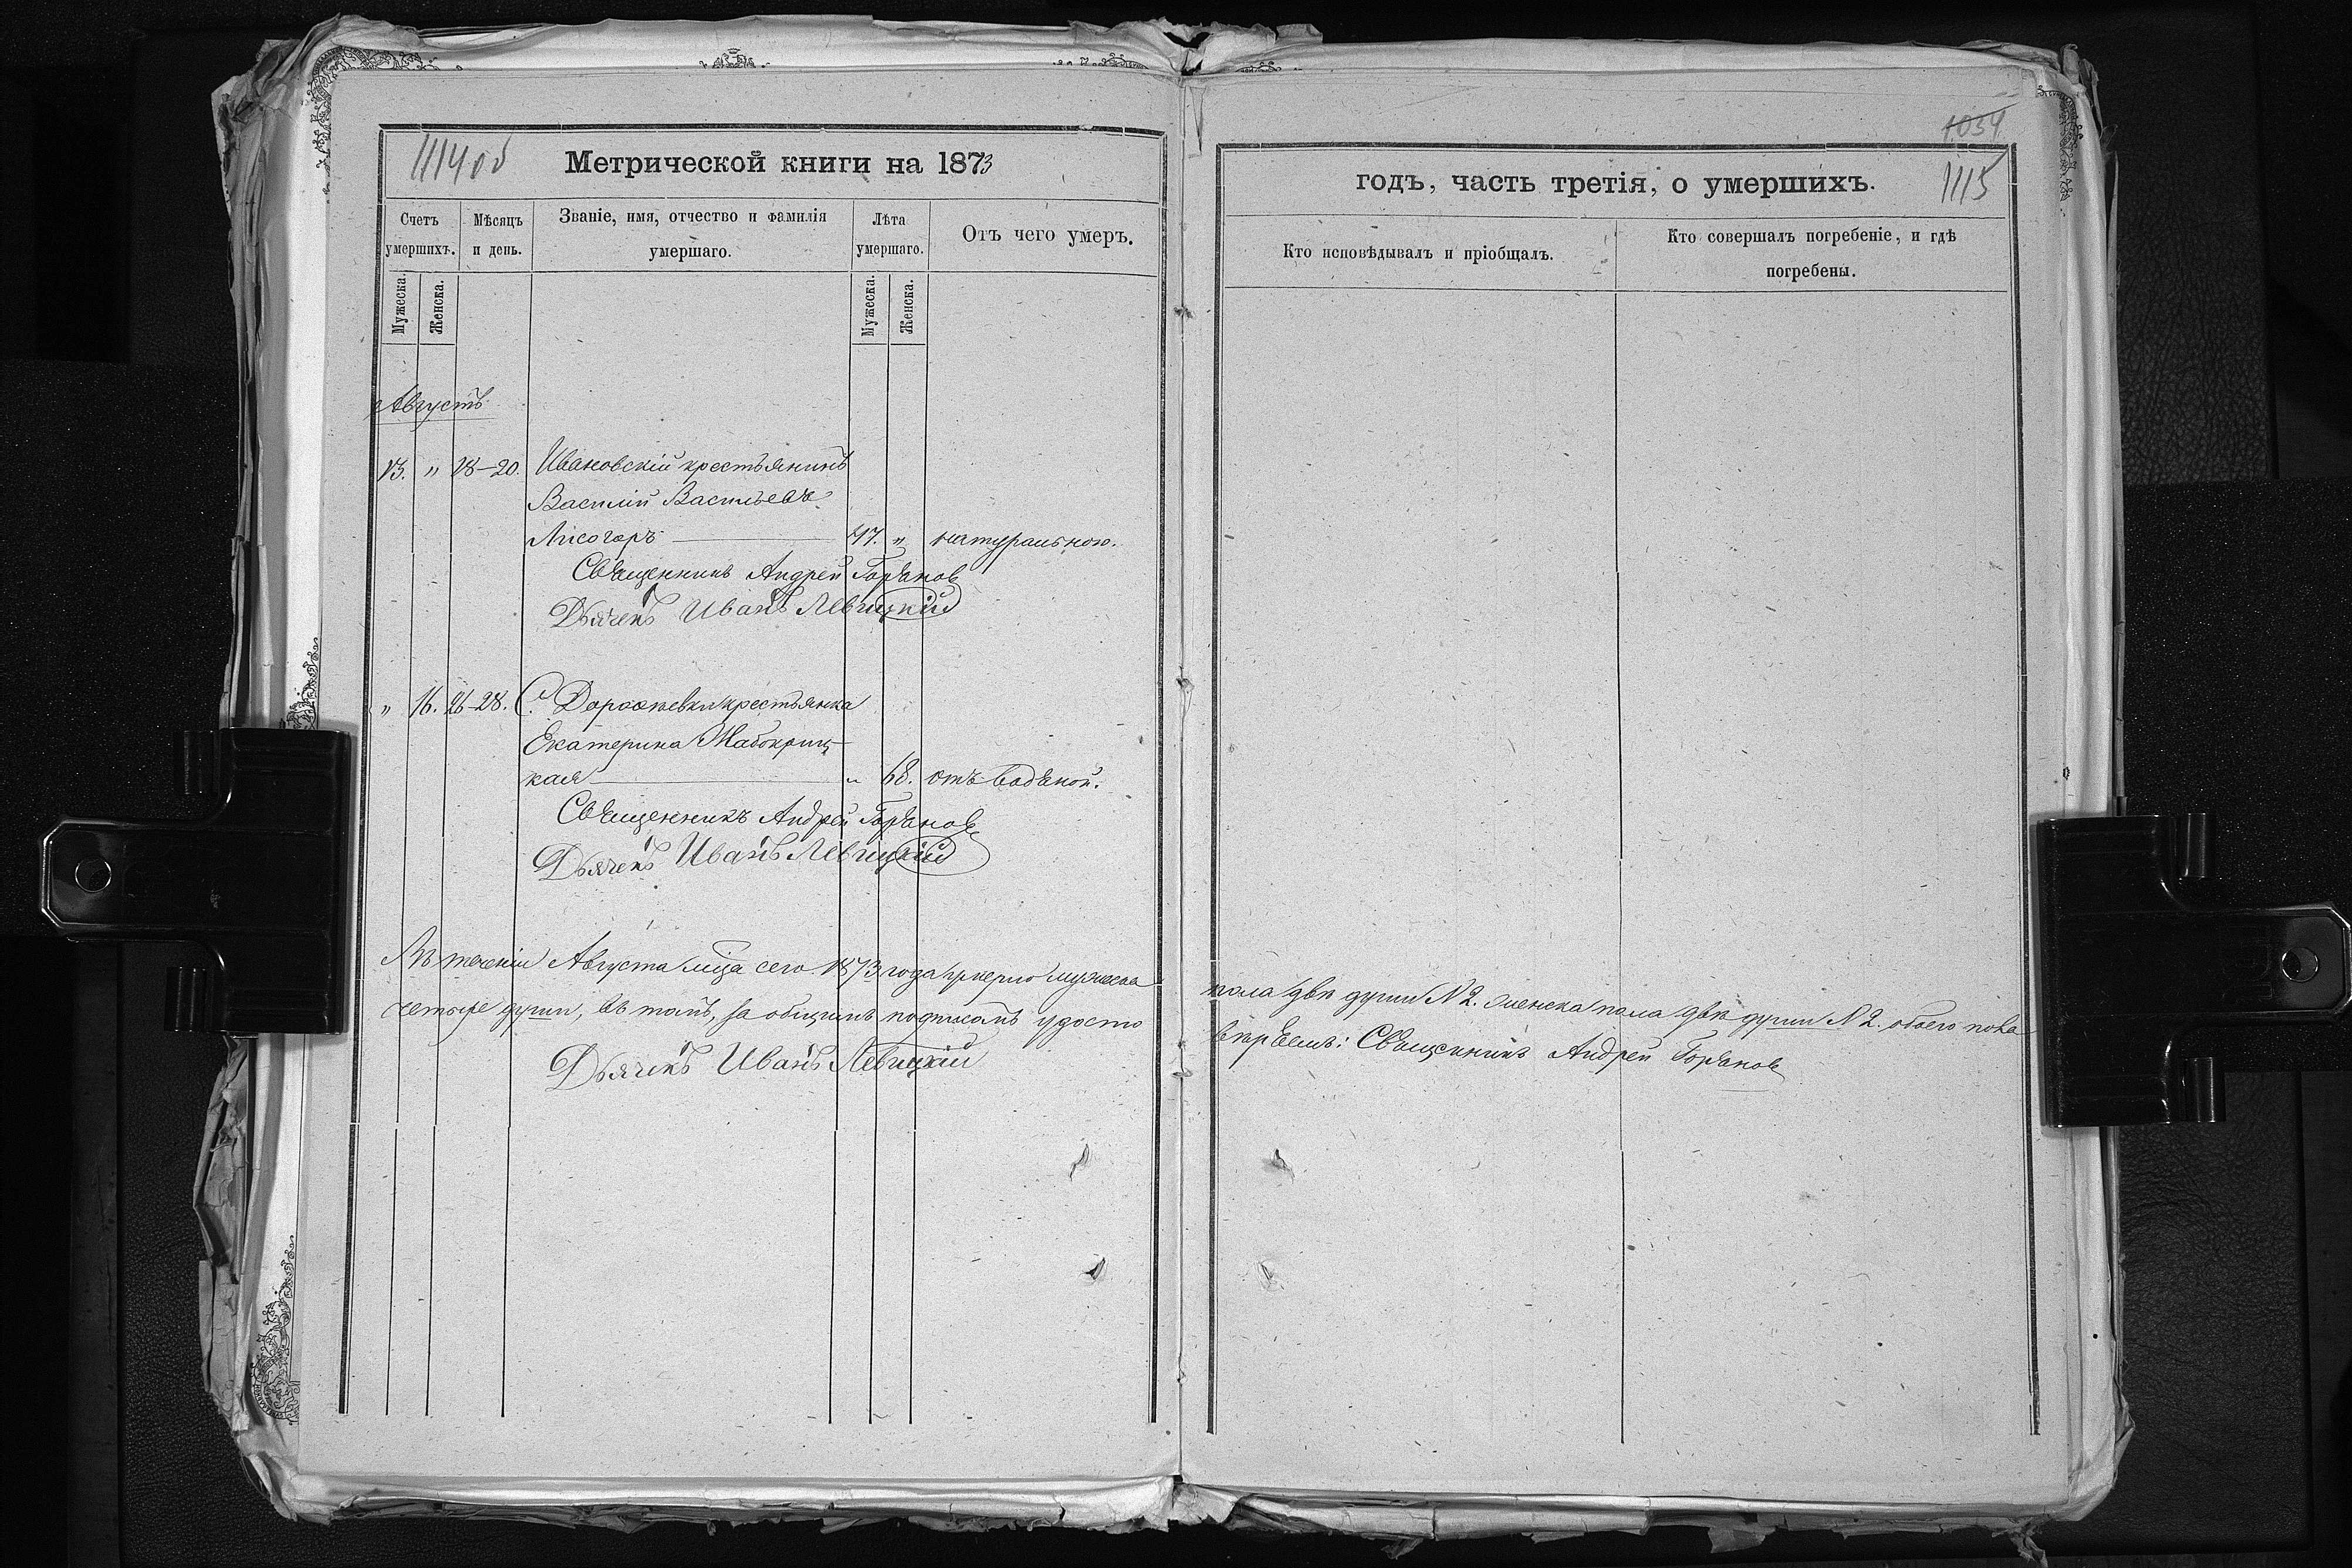 1114 об
Метрической книги на 1873
Счетъ умершихъ.
Мѣсяцъ и день.
Званіе, имя, отчество и фамилія умершаго.
Лѣта умершаго.
Отъ чего умеръ.
Мужеска.
Женска.
Мужеска.
Женска.
Августъ
13. " 18–20. Ивановскій крестьянинъ
Василій Васильевъ
Лисогоръ — 47. " натуральною.
Священникъ Андрей
Дьячекъ Иванъ Левицкій
" 16. 26–28. С. Дорофіевки крестьянка
Екатерина Мабокриц-
кая — " 68. отъ водяной.
Священникъ Андрей
Дьячекъ Иванъ Левицкій
Въ теченіи Августа мца сего 1873 года умерло мужеска
четыре души, въ томъ, за общимъ подписомъ удосто
Дьячекъ Иванъ Левицкій
1034
1115
годъ, часть третія, о умершихъ.
Кто исповѣдывалъ и пріобщалъ.
Кто совершалъ погребеніе, и гдѣ погребены.
пола двѣ души № 2. женска пола двѣ души № 2. обоего пола
вѣряемъ: Священникъ Андрей